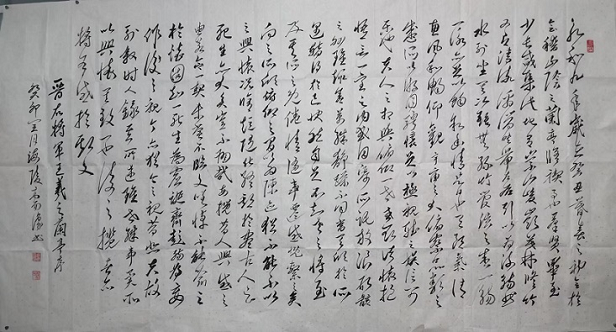 永和九年歲在癸丑暮春之初會於
會稽山陰之蘭亭脩禊事也群賢畢至
少長咸集此地有崇山峻嶺茂林脩竹
又有清流激湍映帶左右引以為流觴曲
水列坐其次雖無絲竹管弦之盛一觴
一詠亦足以暢敘幽情是日也天朗氣清
惠風和暢仰觀宇宙之大俯察品類之
盛所以遊目騁懷足以極視聽之娛信可
樂也夫人之相與俯仰一世或取諸懷抱
悟言一室之內或因寄所託放浪形骸
之外雖趣舍萬殊靜躁不同當其欣於所
遇暫得於己快然自足不知老之將至
及其所之既倦情隨事遷感慨繫之矣
向之所欣俯仰之間以為陳迹猶不能不以
之興懷況脩短隨化終期於盡古人云
死生亦大矣豈不痛哉每攬昔人興感之
由若合一契未嘗不臨文嗟悼不能喻之
於懷固知一死生為虛誕齊彭殤為妄
作後之視今亦猶今之視昔悲夫故
列敘時人錄其所述雖世殊事異所
以興懷其致一也後之攬者亦
將有感於斯文
晉右將軍王羲之蘭亭序
癸卯 月海陵